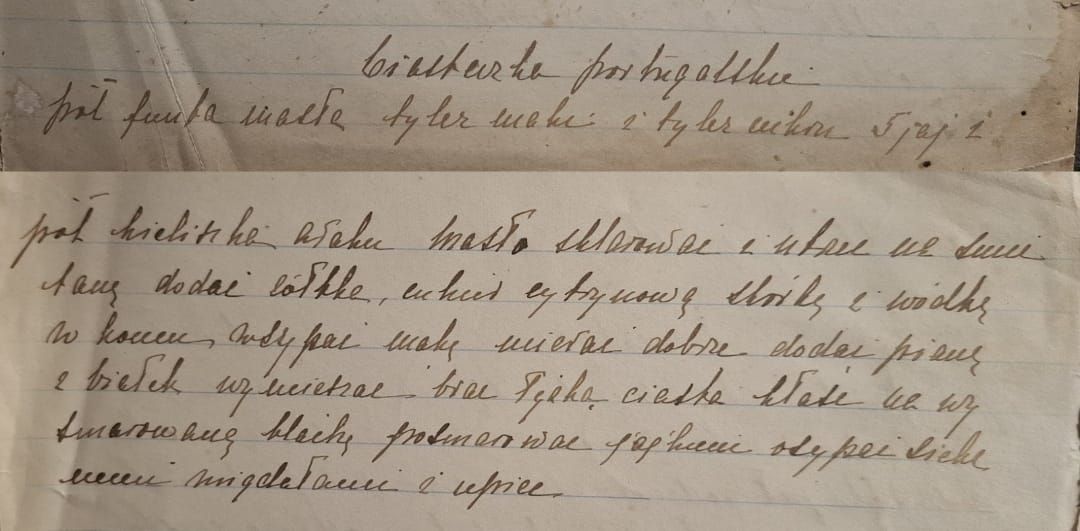 Ciasteczka portugalskie
pół funta masła tyleż mąki i tyleż cukru 5 jaj i
pół kieliszka araku masło sklarować i utrzeć na śmie
taną dodać żółtka, cukier cytrynową skórkę i wódkę
w koncu wsypać mąkę mieszać dobrze dodać pianę
z białek wymieszać brać łyżką ciasta kłaść na wy
smarowaną blachę posmarować jajkiem osypać sieka
nemi migdałami i upiec